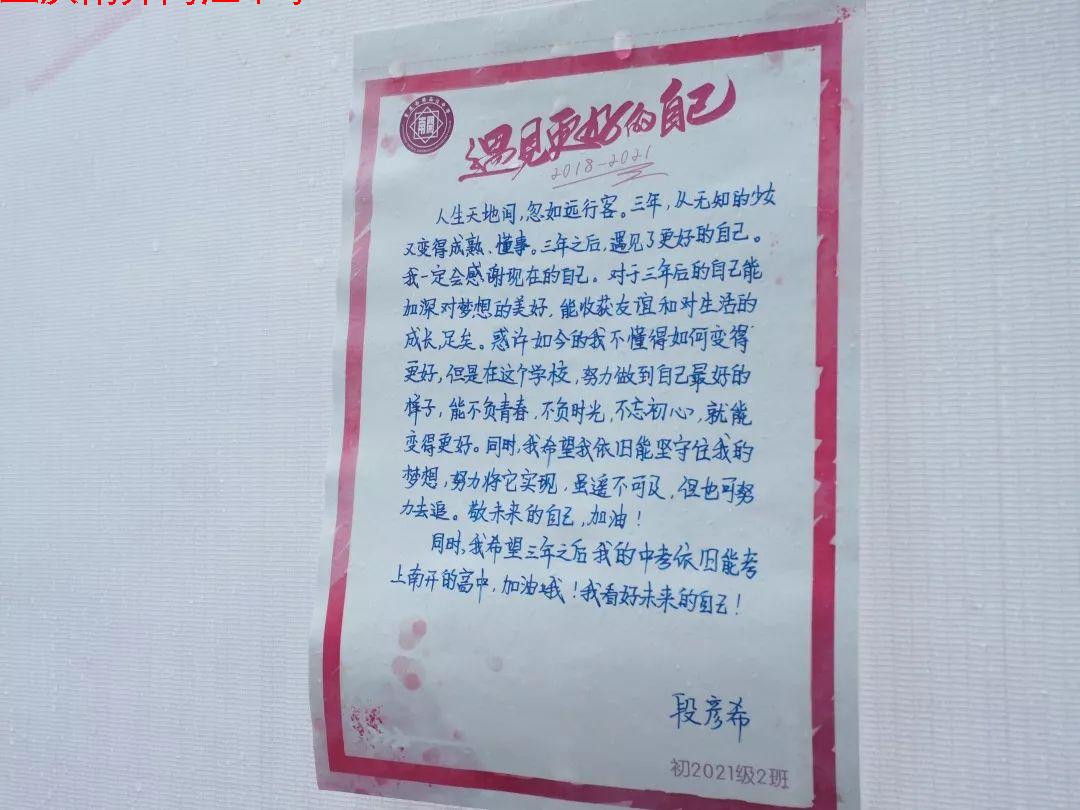 遇见更好的自己
2018-2021
人生天地间,忽如远行客。三年,从无知的少女
又变得成熟、懂事。三年之后,遇见了更好的自己。
我一定会感谢现在的自己。对于三年后的自己能
加深对梦想的美好,能收获友谊和对生活的
成长,足矣。惑许如今的我不懂得如何变得
更好,但是在这个学校,努力做到自己最好的
样子,能不负青春,不负时光,不忘初心,就能
变得更好。同时,我希望我依旧能坚守住我的
梦想,努力将它实现,虽遥不可及,但也可努
力去追。敬未来的自己,加油!
同时,我希望三年之后我的中考依旧能考
上南开的高中,加油哦!我看好未来的自己!
段彦希
初2021级2班